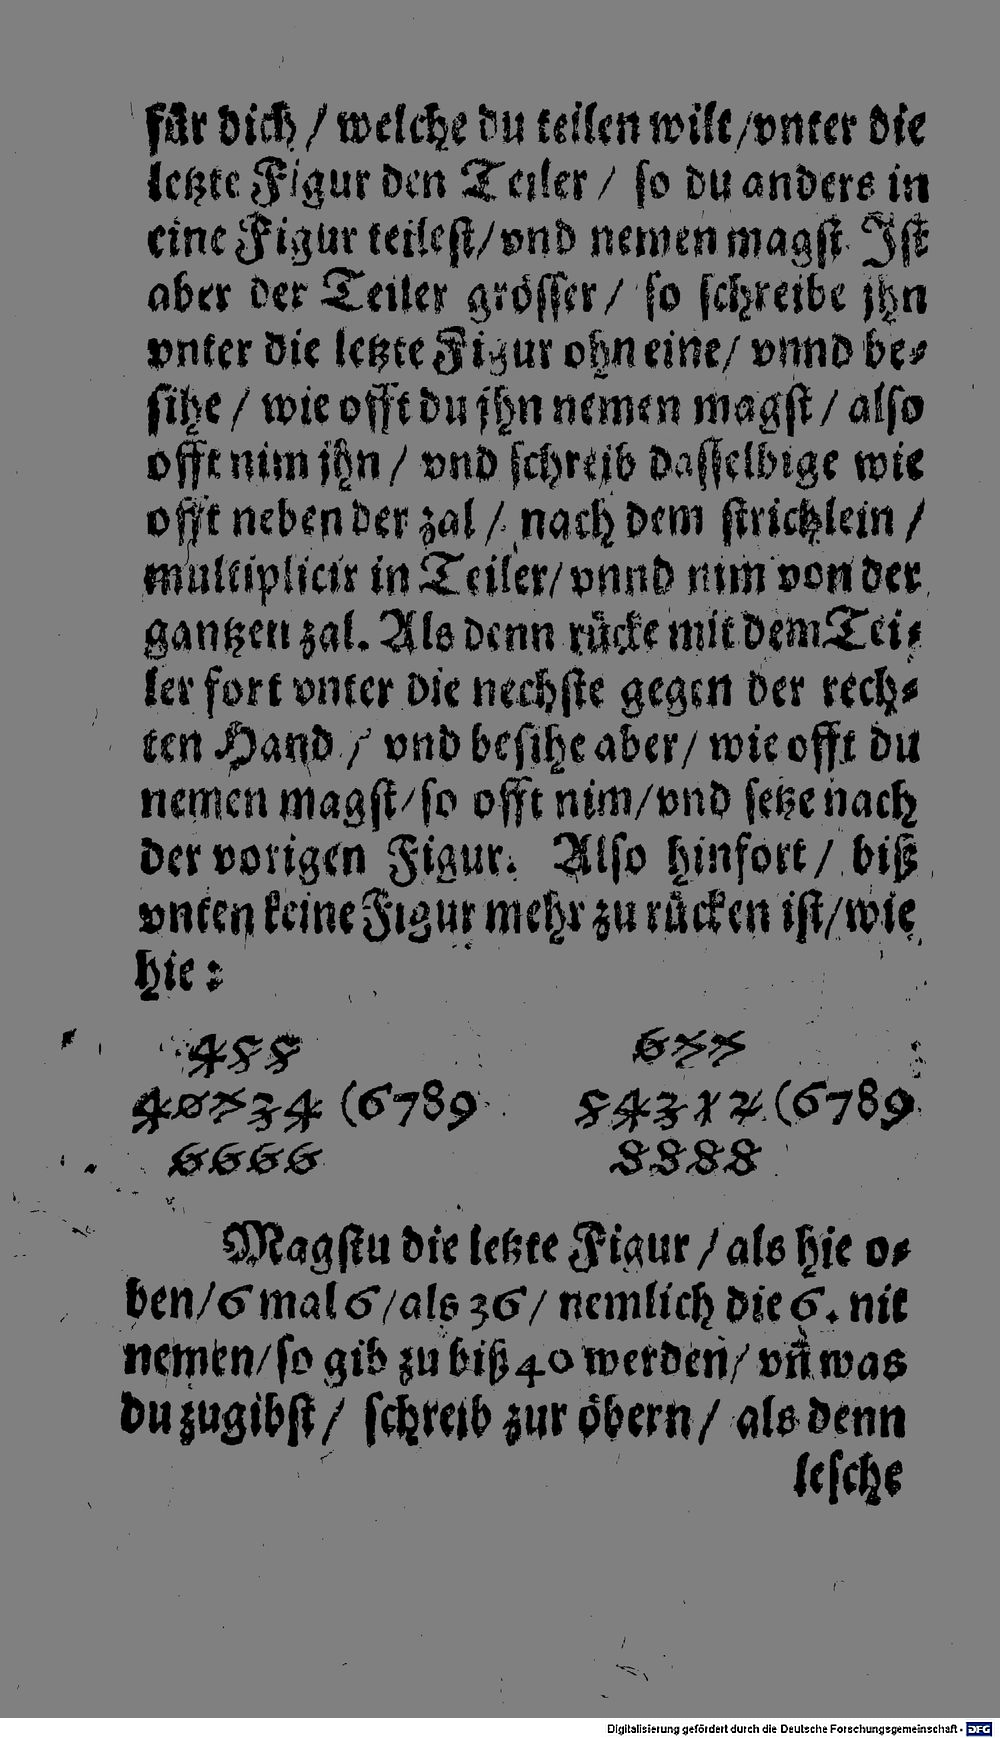 für dich / welche du teilen wilt / vnter die
letzte Figur den Teiler / so du anders in
eine Figur teilest / vnd nemen magst. Ist
aber der Teiler grösser / so schreibe jhn
vnter die letzte Figur ohn eine / vnnd be⸗
sihe / wie offt du jhn nemen magst / also
offt nim jhn / vnd schreib dasselbige wie
offt neben der zal / nach dem strichlein /
multiplicir in Teiler / vnnd nim von der
gantzen zal. Als denn rücke mit dem Tei⸗
ler fort vnter die nechste gegen der rech⸗
ten Hand / vnd besihe aber / wie offt du
nemen magst / so offt nim / vnd setze nach
der vorigen Figur. Also hinfort / biß
vnten keine Figur mehr zu rücken ist / wie
hie :
455 677
40734 (6789 54312 (6789
6666 8888
Magstu die letzte Figur / als hie o⸗
ben / 6 mal 6 / als 36 / nemlich die 6. nit
nemen / so gib zu biß 40 werden / vñ was
du zugibst / schreib zur öbern / als denn
lesche
Digitalisierung gefördert durch die Deutsche Forschungsgemeinschaft - DFG